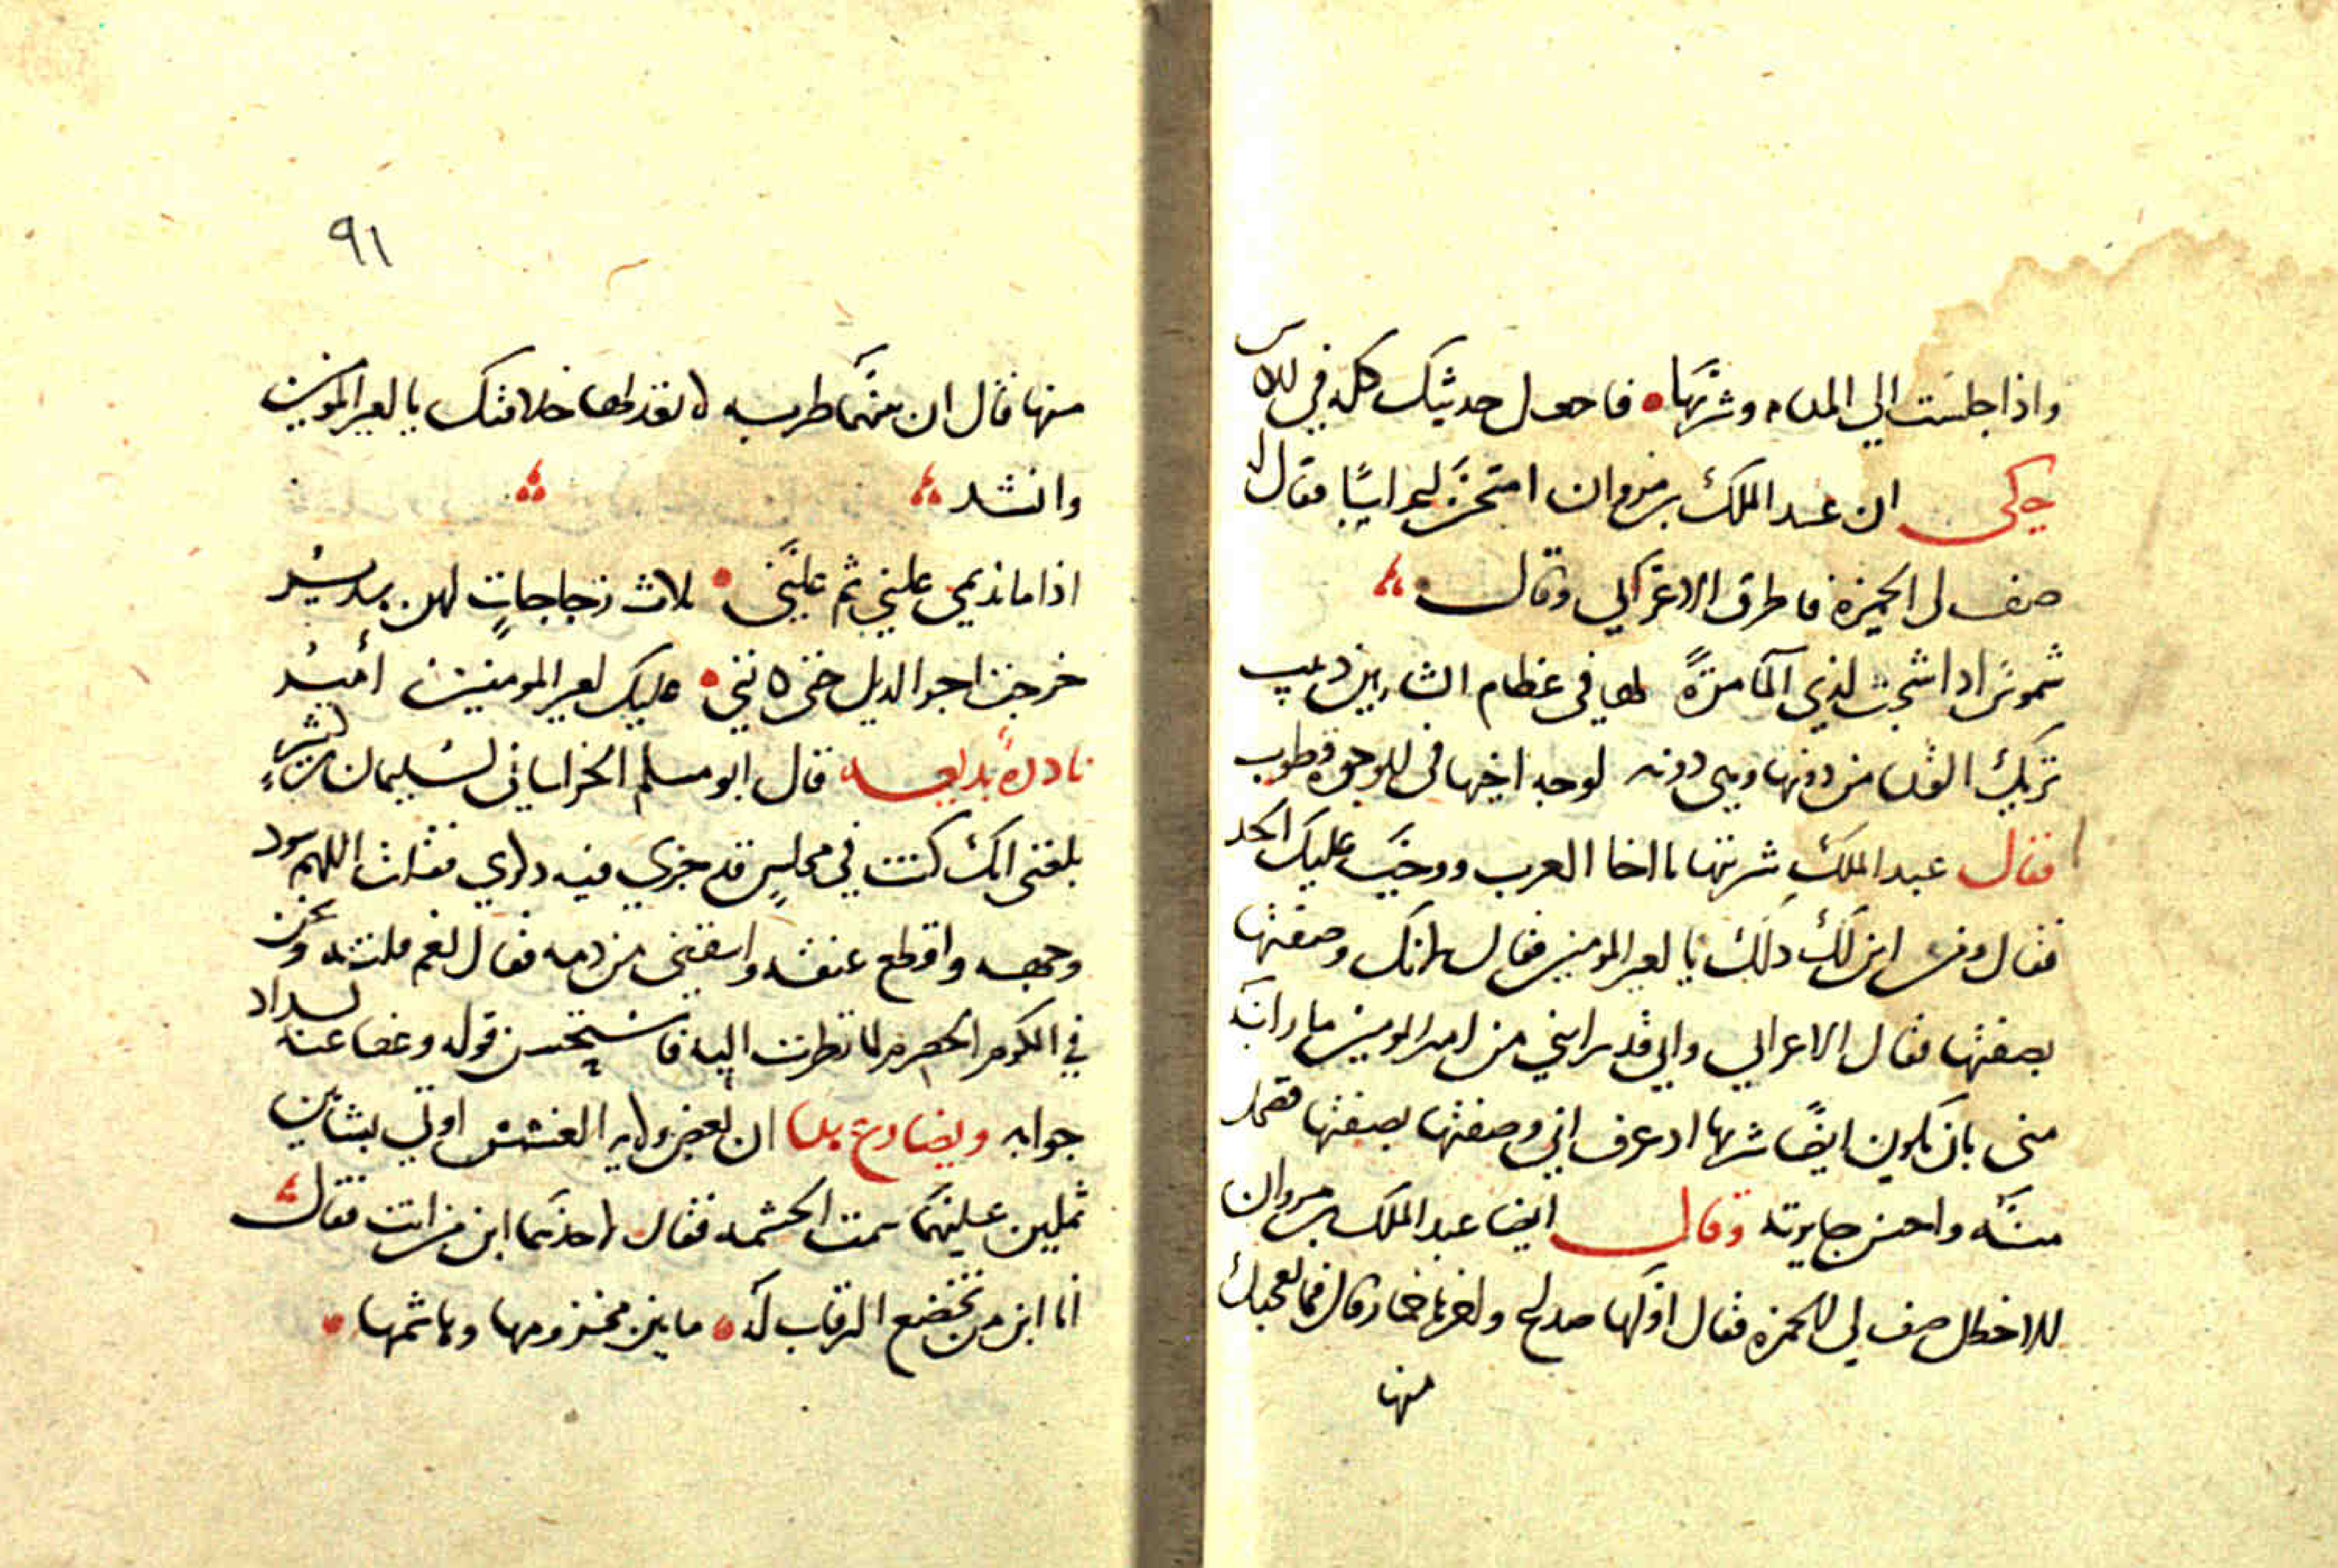 واذا جلست الي المدام وشربها فاجعل حديثك كله في الكاس
حكى ان عبد الملك بن مروان امتحن اعرابيا فقال
صف لي الخمرة فاطرق الاعرابي وقال
شموس اذا شجت لدي الما مزة لها في عظام الشاربين دبيب
تريك القذا من دونها وهي دونه لوجه اخيها في الوجوه قطوب
فقال عبد الملك شربتها يا اخا العرب ووجب عليك الحد
فقال ومن اين لك ذلك يا امير المومنين فقال لانك وصفتها
بصفتها فقال الاعرابي واني قد رابني من امير المومنين ما رابه
مني بان يكون ايضا شربها اذ عرف اني وصفتها بصفتها فضحك
منه واحسن جايزته وقال ايضا عبد الملك بن مروان
للاخطل صف لي الخمرة فقال اولها صداع واخرها خمار قال فما يعجبك
منها
٩١
منها قال ان بينهما طربه لا تعدلها خلافتك يا امير المومنين
وانشد
اذا ما نديمي علني ثم علني ثلاث زجاجات لهن هدير
خرجت اجر الذيل حتى كانني عليك امير المومنين امير
نادرة بديعه قال ابو مسلم الخراساني لسليمان بن كثير
بلغني انك كنت في مجلس قد جري فيه ذكري فقلت اللهم سود
وجهه واقطع عنقه واسقني من دمه فقال نعم قلته ونحن
في الكرم الحصرم لما نظرت اليه فاستحسن قوله وعفا عنه لسداد
جوابه ويضارع هذا ان بعض ولاة العسس اوتي بشابين
ثملين عليهما سمت الحشمه فقال لاحدهما ابن من انت فقال
انا ابن من تخضع الرقاب له ما بين مخزومها وهاشمها